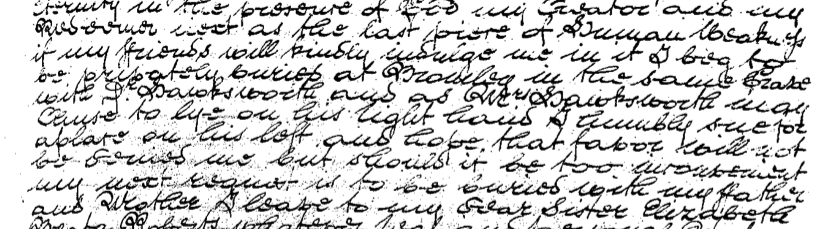 eternity in the presence of God my Creator and my
Redeemer next as the last piece of Human Weakness
if my friends will kindly indulge me in it I beg to
be privately buried at Bromley in the same Grave
with Dr Hawksworth and as Mrs Hawksworth may
Chuse to lye on his right hand I humbly sue for
a place on his left and hope that favor will not
be denied me but should it be too inconvenient
my next request is to be buried with my father
and Mother I leave to my dear Sister Elizabeth
Roberts whatever